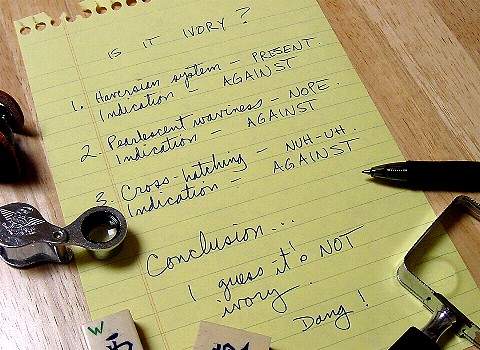 IS IT IVORY?
1. Haversian system - PRESENT.
Indication - AGAINST
2. Pearlescent waviness - NOPE.
Indication - AGAINST
3. Cross-hatching - NUH-UH.
Indication - AGAINST
Conclusion...
I guess it's NOT
ivory.
Dang!
W